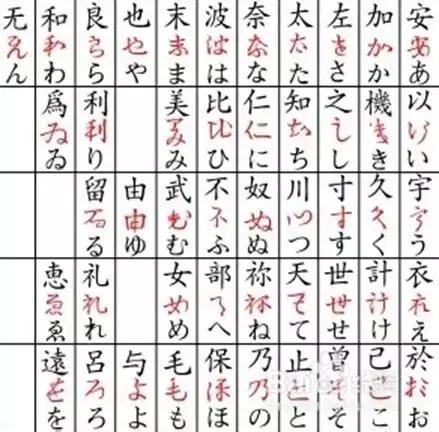 安あ 以い 宇う 衣え 於お
加か 機き 久く 計け 己こ
左さ 之し 寸す 世せ 曽そ
太た 知ち 川つ 天て 止と
奈な 仁に 奴ぬ 祢ね 乃の
波は 比ひ 不ふ 部へ 保ほ
末ま 美み 武む 女め 毛も
也や 由ゆ 与よ
良ら 利り 留る 礼れ 呂ろ
和わ 爲ゐ 恵ゑ 遠を
无ん